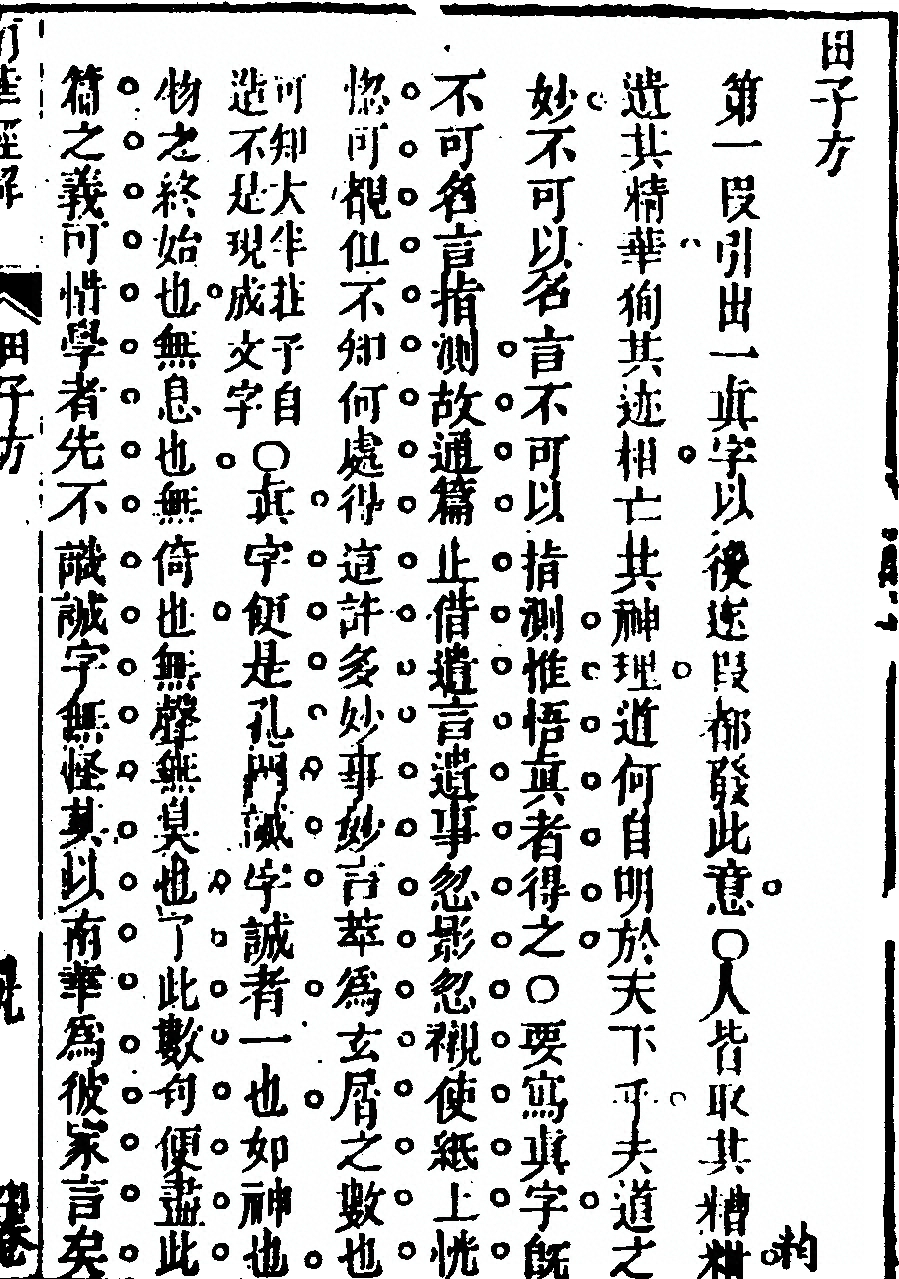 田子方
第一段引出一真字以後逐段都發此意〇人皆取其糟粕
遺其精華徇其迹相亡其神理道何自明於天下乎夫道之
妙不可以名言不可以指測惟悟真者得之〇要寫真字既
不可名言指測故通篇止借遺言遺事忽影忽襯使紙上恍
惚可覩但不知何處得這許多妙事妙言萃為玄屑之數也
可知大半莊子自
造不是現成文字
〇真字便是孔門誠字誠者一也如神也
物之終始也無息也無倚也無聲無臭也了此數句便盡此
篇之義可惜學者先不識誠字無怪其以南華為彼家言矣
田子方